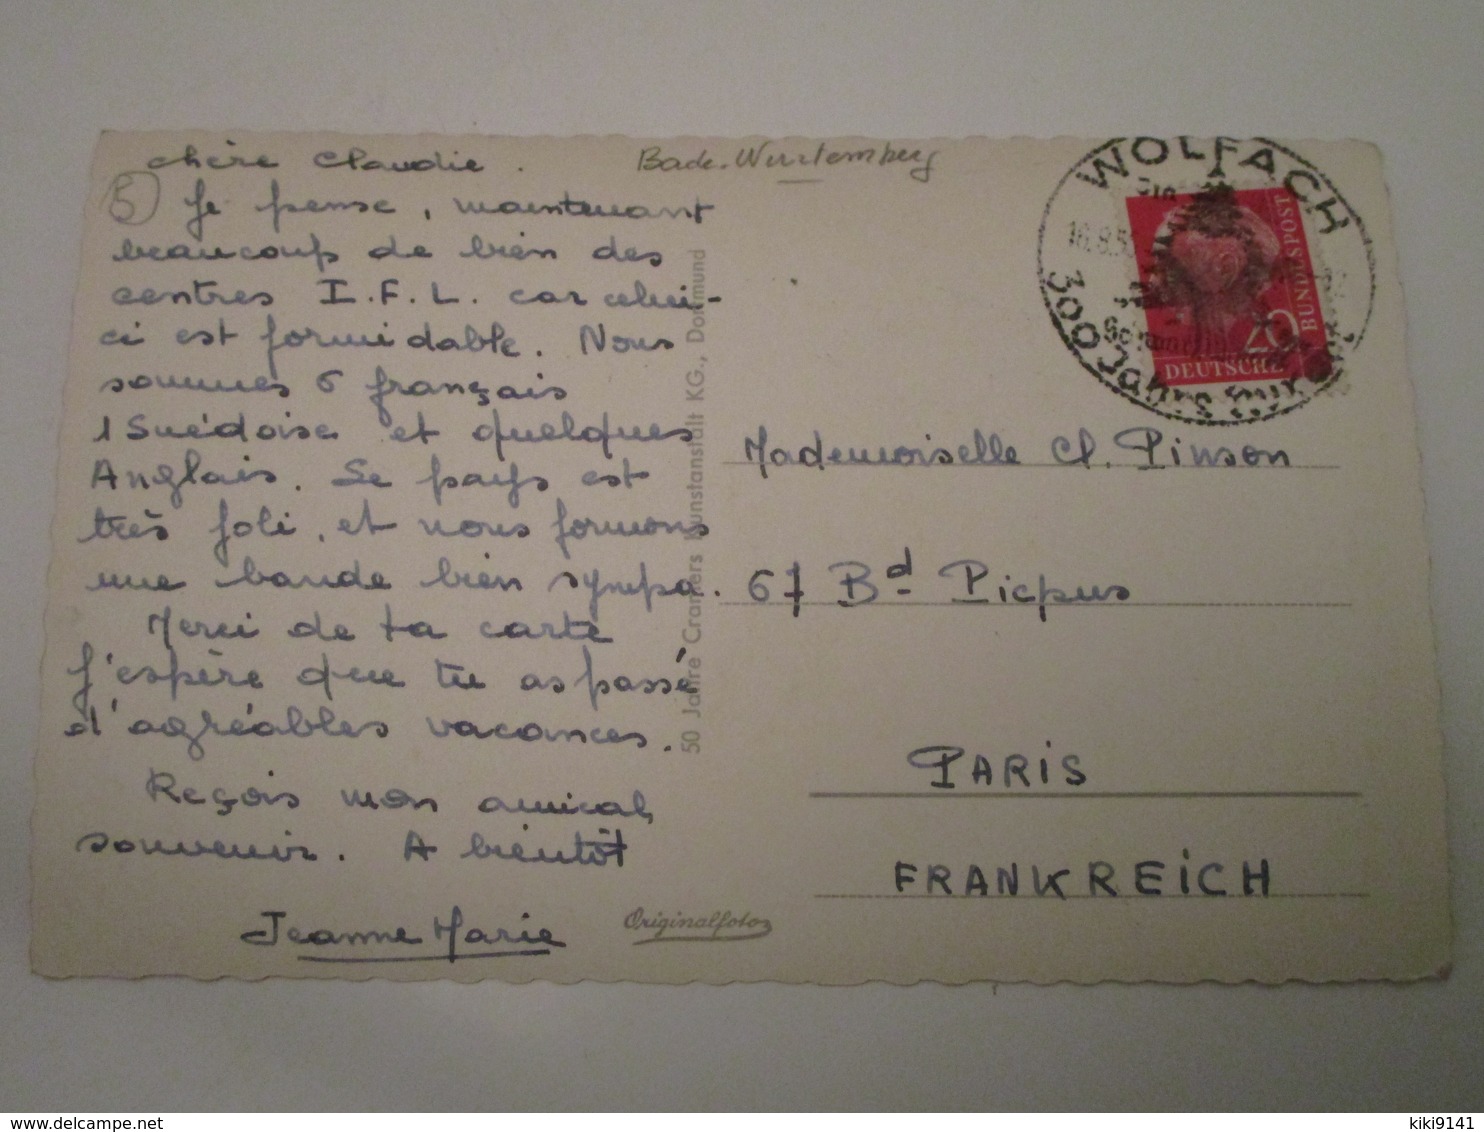 chère Claudie.
Bade-Wurtemberg
5
Je pense, maintenant
beaucoup de bien des
centres I.F.L. car celui-
ci est formidable. Nous
sommes 6 français
1 Suédoise et quelques
Anglais. Le pays est
très joli, et nous formons
une bande bien sympa.
Merci de ta carte
J'espère que tu as passé
d'agréables vacances.
Reçois mon amical
souvenir. A bientôt
Jeanne Marie
50 Jahre Cramers Kunstanstalt KG., Dortmund
Originalfoto
WOLFACH
16.8.5
300 Jahre
20
DEUTSCHE
BUNDESPOST
Mademoiselle Cl. Pinson
67 Bd Picpus
PARIS
FRANKREICH
delcampe.net
kiki9141